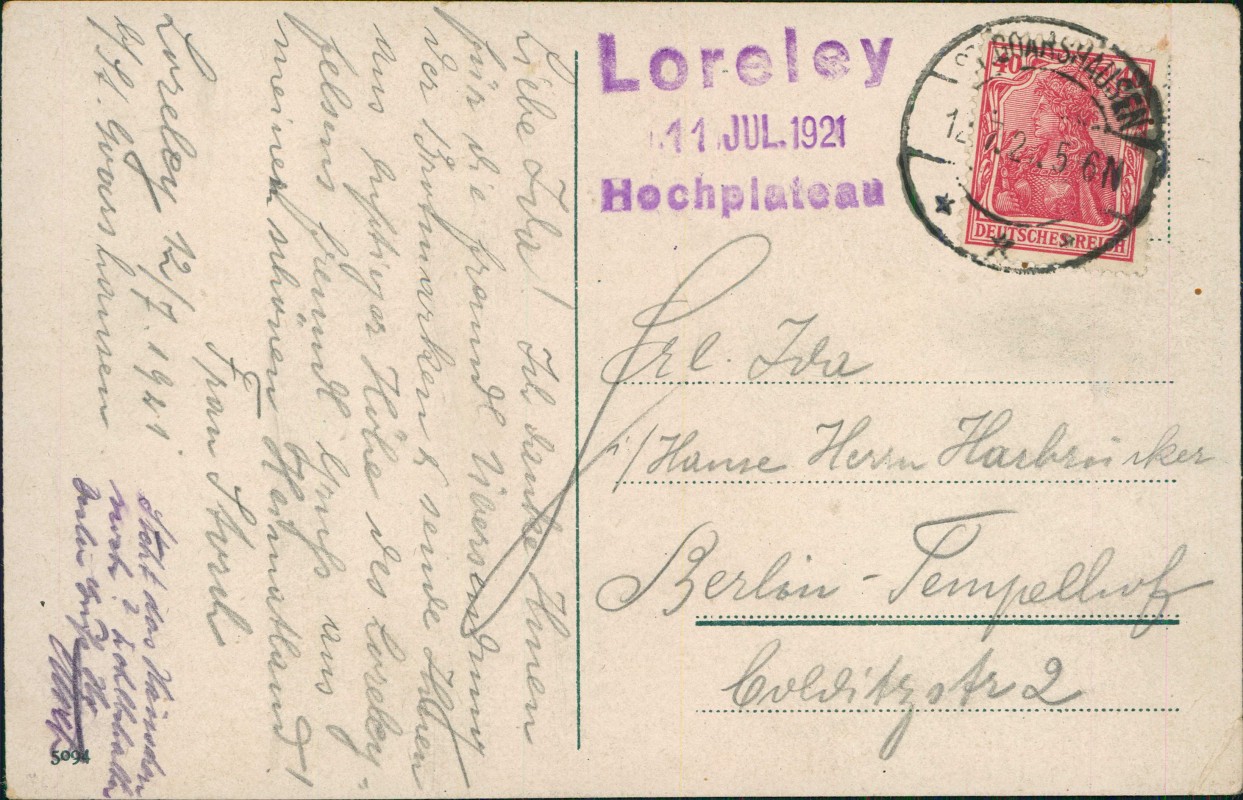 Loreley
11. JUL. 1921
Hochplateau
GOARSHAUSEN
5-6N
40
DEUTSCHES REICH
Frl. Ida
i/Hause Herrn Harbrücker
Berlin-Tempelhof
Colditzstr 2
Liebe Ida! Ich danke Ihnen
für die freundl Übersendung
der Brotmarken & sende Ihnen
aus luftiger Höhe des Loreley-
felsens freundl. Gruss aus
meinem schönen Heimatland!
Frau Storch
Loreley 12/7. 1921.
b/St. Goarshausen
Steht das Häuschen
noch?
5094